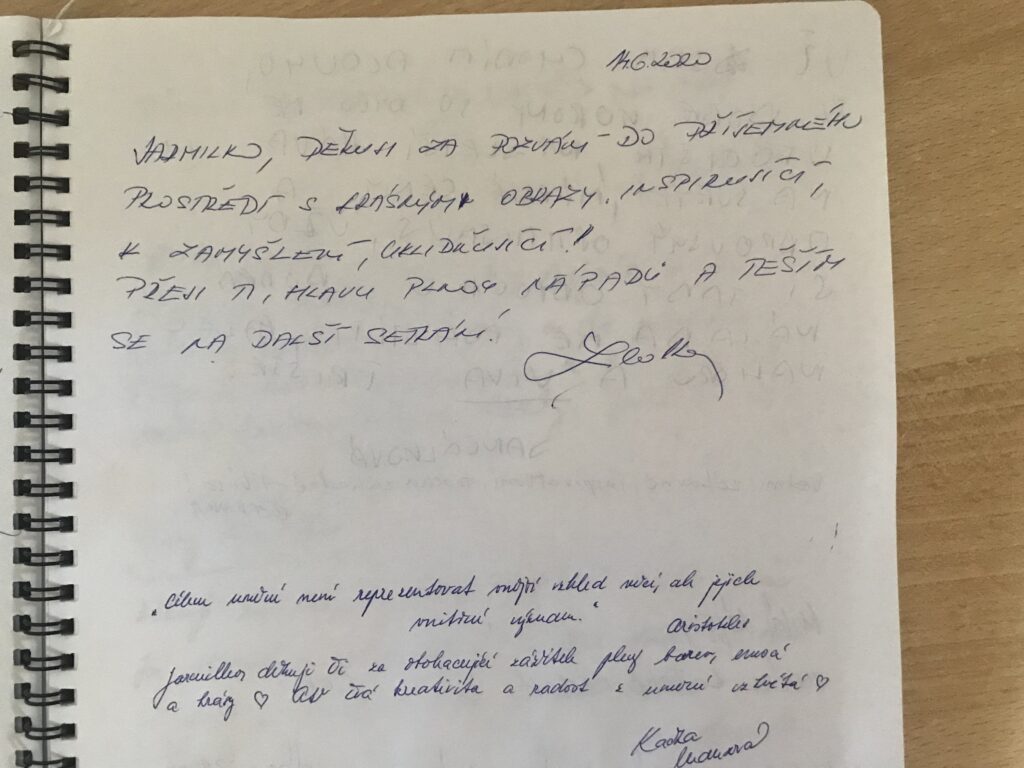 14.6.2020
JARMILKO, DĚKUJI ZA POZVÁNÍ DO PŘÍJEMNÉHO
PROSTŘEDÍ S KRÁSNÝMI OBRAZY. INSPIRUJÍCÍ,
K ZAMYŠLENÍ, UKLIDŇUJÍCÍ!"
PŘEJI TI, HLAVU PLNOU NÁPADŮ A TĚŠÍM
SE NA DALŠÍ SETKÁNÍ!
"Cílem umění není reprezentovat vnější vzhled věcí, ale jejich
vnitřní význam."
Aristoteles
Jarmilko, děkuji Ti za obohacující zážitek plný barev, emocí
a krásy ♡ Ať Tvá kreativita a radost z umění vzkvétá ♡
Kačka